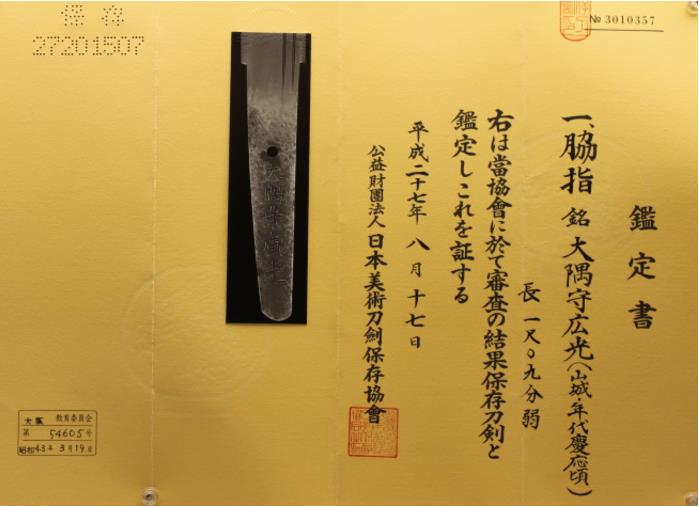 保存
27201507
№ 3010357
鑑定書
一、脇指 銘 大隅守広光(山城・年代慶応頃)
長 一尺〇九分弱
右は當協會に於て審査の結果保存刀剣と
鑑定しこれを証する
平成二十七年 八月 十七日
公益財團法人 日本美術刀劍保存協會
大隅守広光
大阪 教育委員会
第 54605号
昭和43年 3月19日